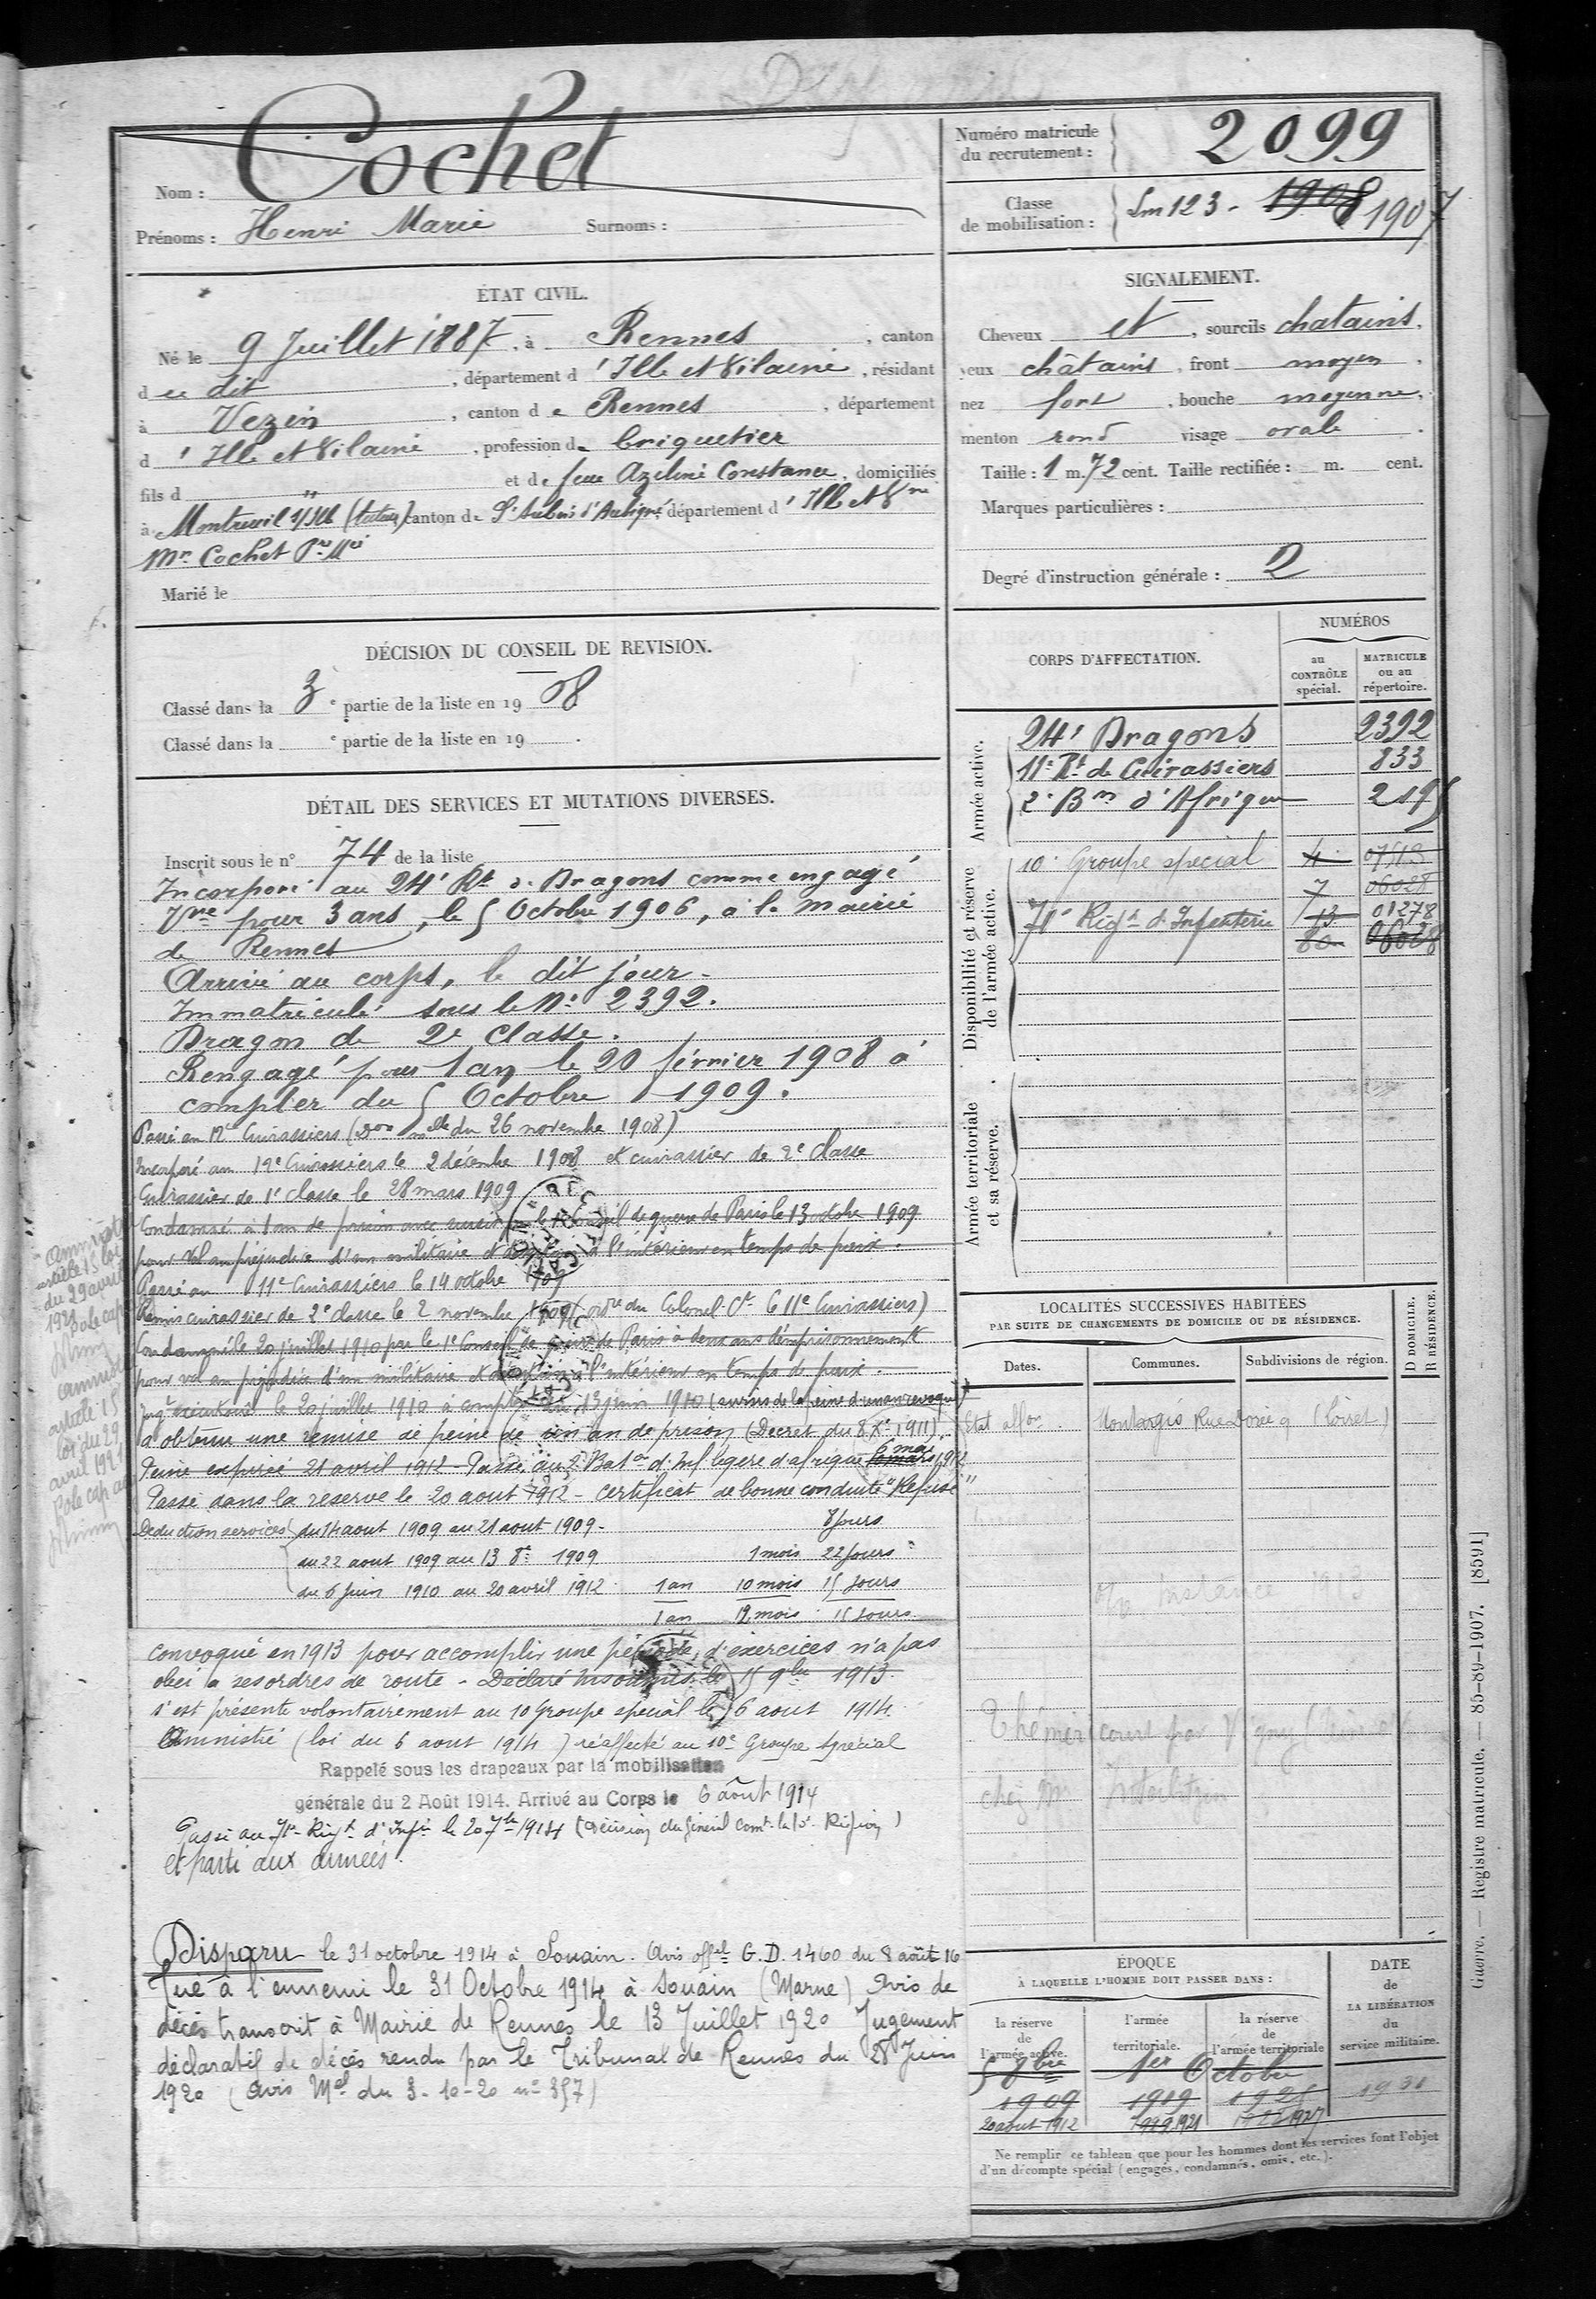 Cochet
Nom :
Prénoms : Henri Marie Surnoms :
Numéro matricule du recrutement : 2099
Classe de mobilisation : Lm 123 - 1908 1907
ÉTAT CIVIL.
Né le 9 Juillet 1887, à Rennes, canton
d u dit, département d'Ille et Vilaine, résidant
à Vezin, canton de Rennes, département
d'Ille et Vilaine, profession de briquetier
fils d " et de feue Azeline Constance, domiciliés
à Montreuil s/Ille (tuteur) canton de St Aubin d'Aubigné département d'Ille et Vne
Mr Cochet Pre Mie
Marié le
SIGNALEMENT.
Cheveux et, sourcils chatains,
yeux châtains, front moyen,
nez fort, bouche moyenne,
menton rond visage ovale.
Taille : 1 m. 72 cent. Taille rectifiée : m. cent.
Marques particulières :
Degré d'instruction générale : 2
DÉCISION DU CONSEIL DE REVISION.
Classé dans la 3e partie de la liste en 1908
Classé dans la e partie de la liste en 19 .
DÉTAIL DES SERVICES ET MUTATIONS DIVERSES.
Inscrit sous le n° 74 de la liste
Incorporé au 24e Rt de Dragons comme engagé
Vre pour 3 ans, le 5 Octobre 1906, à la mairie
de Rennes
Arrivé au corps, le dit jour.
Immatriculé sous le No 2392.
Dragon de 2e classe.
Rengagé pour 1 an le 20 février 1908 à
compter du 5 Octobre 1909.
Passé au 12e Cuirassiers (Don mlle du 26 novembre 1908)
Incorporé au 12e Cuirassiers le 2 décembre 1908 et cuirassier de 2e classe
Cuirassier de 1e classe le 28 mars 1909
Condamné à 1 an de prison avec sursis par le 1e Conseil de guerre de Paris le 13 octobre 1909
pour vol au préjudice d'un militaire et désertion à l'intérieur en temps de paix.
Passé au 11e Cuirassiers le 14 octobre 1909
Remis cuirassier de 2e classe le 2 novembre 1909 (ordre du Colonel Ct le 11e Cuirassiers)
Condamné le 20 juillet 1910 par le 1e Conseil de guerre de Paris à deux ans d'emprisonnement
pour vol au préjudice d'un militaire et désertion à l'intérieur en temps de paix.
Jugt exécutoire le 20 juillet 1910 à compter du 13 juin 1910 (sursis de la peine d'un an révoqué)
a obtenu une remise de peine de un an de prison (Decret du 8 Xe 1911).
Peine expirée 21 avril 1912 - Passé au 2e Baton d'Inf légère d'afrique 6 mai 1912
Passé dans la réserve le 20 aout 1912 - certificat de bonne conduite "Refusé"
Deduction services du 14 aout 1909 au 21 aout 1909 - 8 jours
du 22 aout 1909 au 13 8e 1909 1 mois 22 jours
du 6 juin 1910 au 20 avril 1912 1 an 10 mois 15 jours
1 an 12 mois 15 jours
convoqué en 1913 pour accomplir une période d'exercices n'a pas
obéi a ses ordres de route - Déclaré insoumis le 15 9bre 1913.
s'est présenté volontairement au 10 Groupe spécial le 6 aout 1914.
Amnistié (loi du 6 aout 1914) réaffecté au 10e Groupe Spécial
Rappelé sous les drapeaux par la mobilisation
générale du 2 Août 1914. Arrivé au Corps le 6 août 1914
Passé au 71e Régt d'Infie le 20 7bre 1914 (décision du Général Comt la 10e Région)
et parti aux armées.
Disparu le 31 octobre 1914 à Souain. Avis offel G.D. 1460 du 8 août 16
Tué à l'ennemi le 31 Octobre 1914 à Souain (Marne) Avis de
décès transcrit à Mairie de Rennes le 13 Juillet 1920 Jugement
déclaratif de décès rendu par le Tribunal de Rennes du 28 Juin
1920 (Avis Mel du 3-10-20 no 357)
amnistié
article 15 loi
du 29 avril
1921
amnistié
article 15
loi du 29
avril 1921
CORPS D'AFFECTATION.
NUMÉROS
au CONTRÔLE spécial.
MATRICULE ou au répertoire.
Armée active.
24e Dragons 2392
11e Rt de Cuirassiers 833
2e Bon d'Afrique 2195
Disponibilité et réserve de l'armée active.
10e Groupe spécial 4 07513
7 06028
71e Régt d'Infanterie 13 01278
80 06028
Armée territoriale et sa réserve.
LOCALITÉS SUCCESSIVES HABITÉES
PAR SUITE DE CHANGEMENTS DE DOMICILE OU DE RÉSIDENCE.
Dates. Communes. Subdivisions de région. D DOMICILE. R RÉSIDENCE.
Montargis Rue Dorée 9 (Loiret)
ÉPOQUE
À LAQUELLE L'HOMME DOIT PASSER DANS :
DATE de LA LIBÉRATION du service militaire.
la réserve de l'armée active.
l'armée territoriale.
la réserve de l'armée territoriale
5 8bre 1er Octobre
1909 1919 1925 1931
20 aout 1912 1921 1927
Ne remplir ce tableau que pour les hommes dont les services font l'objet
d'un décompte spécial (engagés, condamnés, omis, etc.).
Guerre. — Registre matricule. — 85-89-1907. [8591]